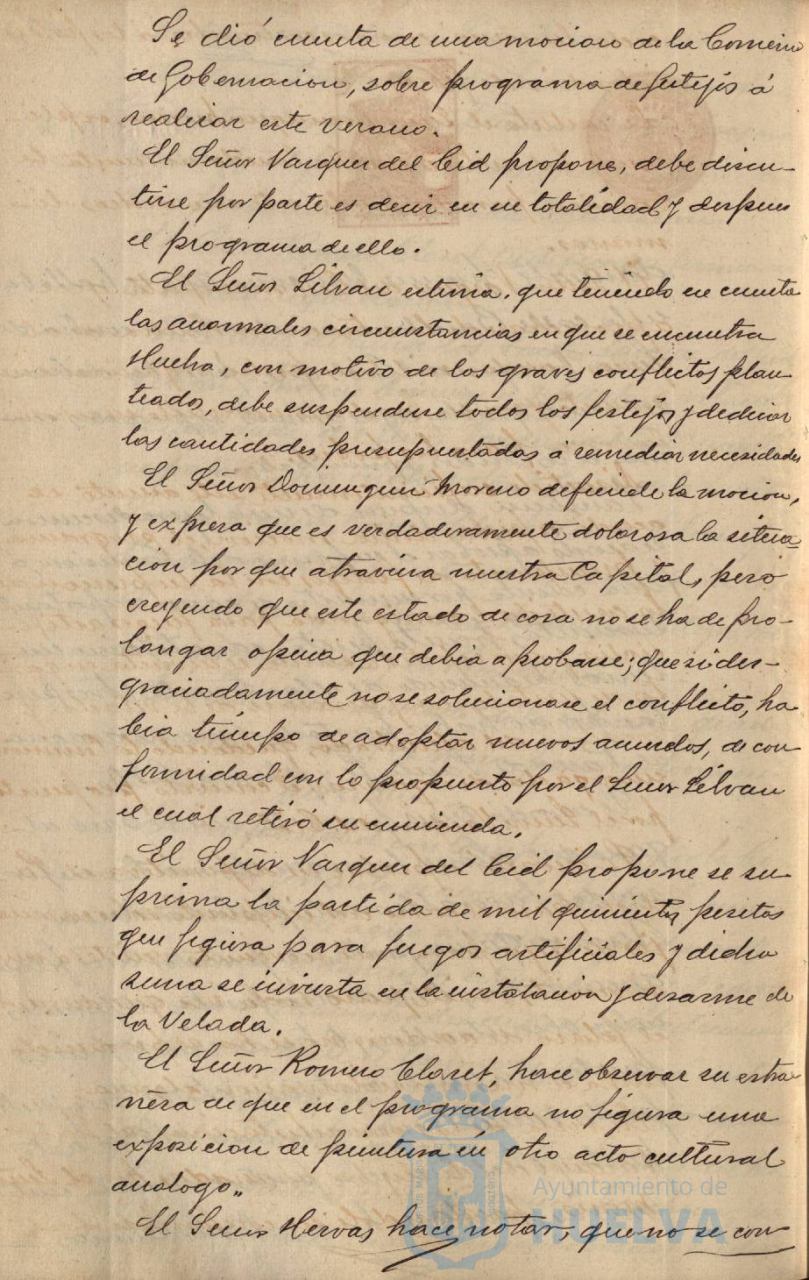 Se dió cuenta de una mocion de la Comision
de Gobernacion, sobre programa de festejos á
realizar este verano.
El Señor Vazquez del Cid propone, debe discu-
tirse por parte es decir en su totalidad y despues
el programa de ello.
El Señor Silvan estima, que teniendo en cuenta
las anormales circunstancias en que se encuentra
Huelva, con motivo de los graves conflictos plan-
teados, debe suspenderse todos los festejos y dedicar
las cantidades presupuestadas á remediar necesidades
El Señor Dominguez Moreno defiende la mocion,
y expresa que es verdaderamente dolorosa la situa-
cion por que atraviesa nuestra Capital, pero
creyendo que este estado de cosa no se ha de pro-
longar opina que debia aprobarse; que si des-
graciadamente no se solucionase el conflicto, ha-
bia tiempo de adoptar nuevos acuerdos, de con-
formidad con lo propuesto por el Señor Silvan
el cual retiró su enmienda.
El Señor Vazquez del Cid propone se su-
prima la partida de mil quinientas pesetas
que figura para fuegos artificiales y dicha
suma se invierta en la instalacion y desarme de
la Velada.
El Señor Romero Claret, hace observar su estra-
ñeza de que en el programa no figura una
exposicion de pintura ú otro acto cultural
analogo.
El Señor Hervas hace notar, que no se con-
Ayuntamiento de
HUELVA